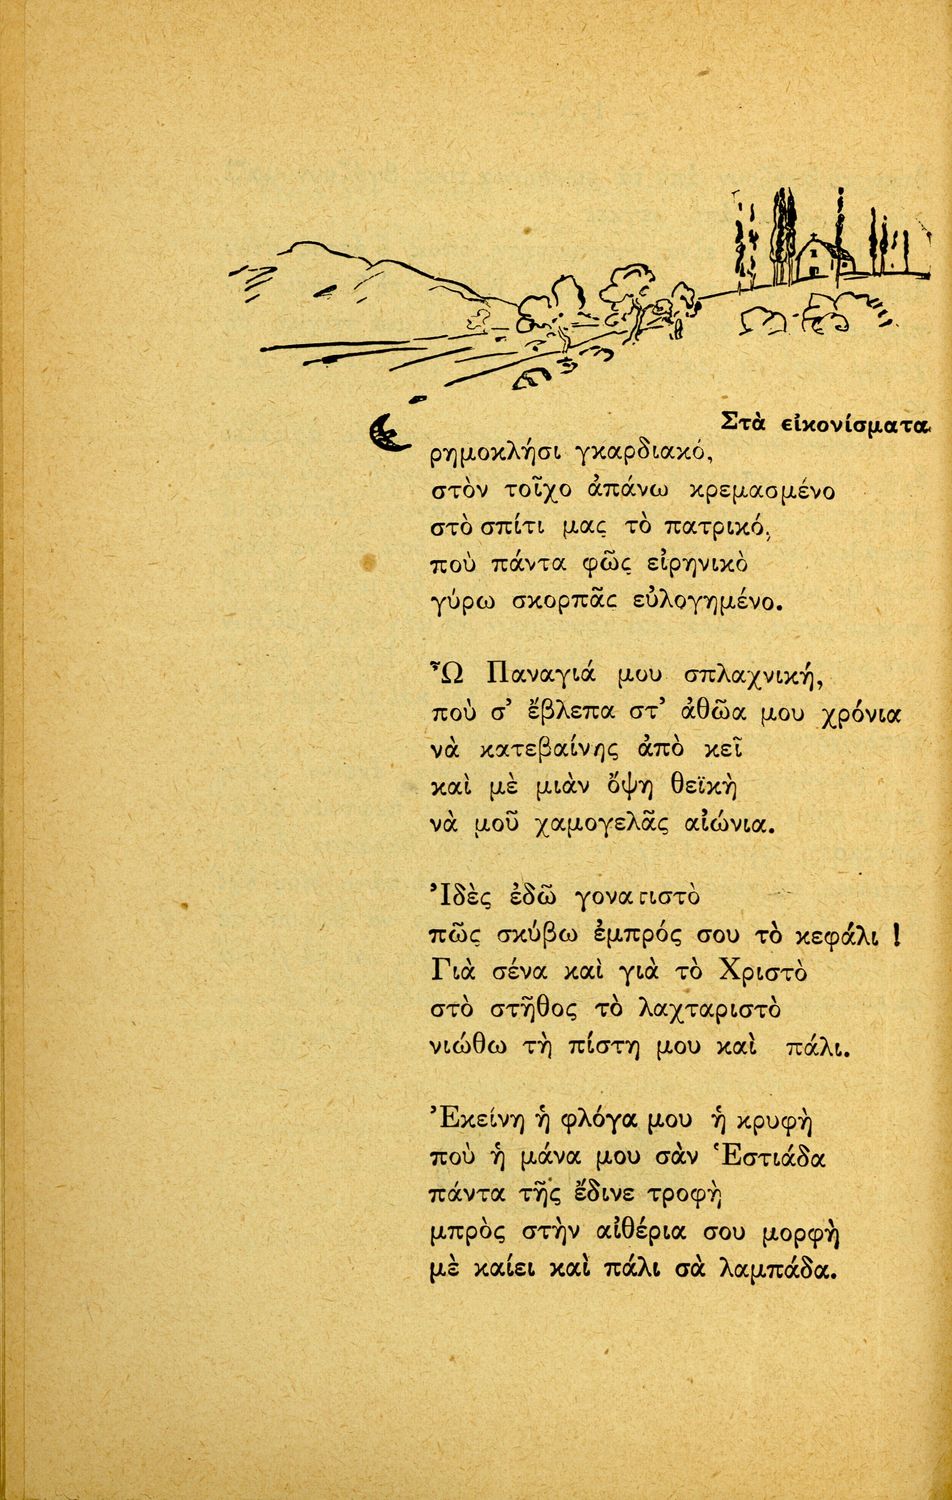 Στὰ εἰκονίσματα.
ρημοκλήσι γκαρδιακό,
στὸν τοῖχο ἀπάνω κρεμασμένο
στὸ σπίτι μας τὸ πατρικό,
ποὺ πάντα φῶς εἰρηνικὸ
γύρω σκορπᾶς εὐλογημένο.
Ὦ Παναγιά μου σπλαχνική,
ποὺ σ' ἔβλεπα στ' ἀθῶα μου χρόνια
νὰ κατεβαίνης ἀπὸ κεῖ
καὶ μὲ μιὰν ὄψη θεϊκὴ
νὰ μοῦ χαμογελᾶς αἰώνια.
Ἰδὲς ἐδῶ γονατιστὸ
πῶς σκύβω ἐμπρός σου τὸ κεφάλι !
Γιὰ σένα καὶ γιὰ τὸ Χριστὸ
στὸ στῆθος τὸ λαχταριστὸ
νιώθω τὴ πίστη μου καὶ πάλι.
Ἐκείνη ἡ φλόγα μου ἡ κρυφὴ
ποὺ ἡ μάνα μου σὰν Ἑστιάδα
πάντα τῆς ἔδινε τροφὴ
μπρὸς στὴν αἰθέρια σου μορφὴ
μὲ καίει καὶ πάλι σὰ λαμπάδα.